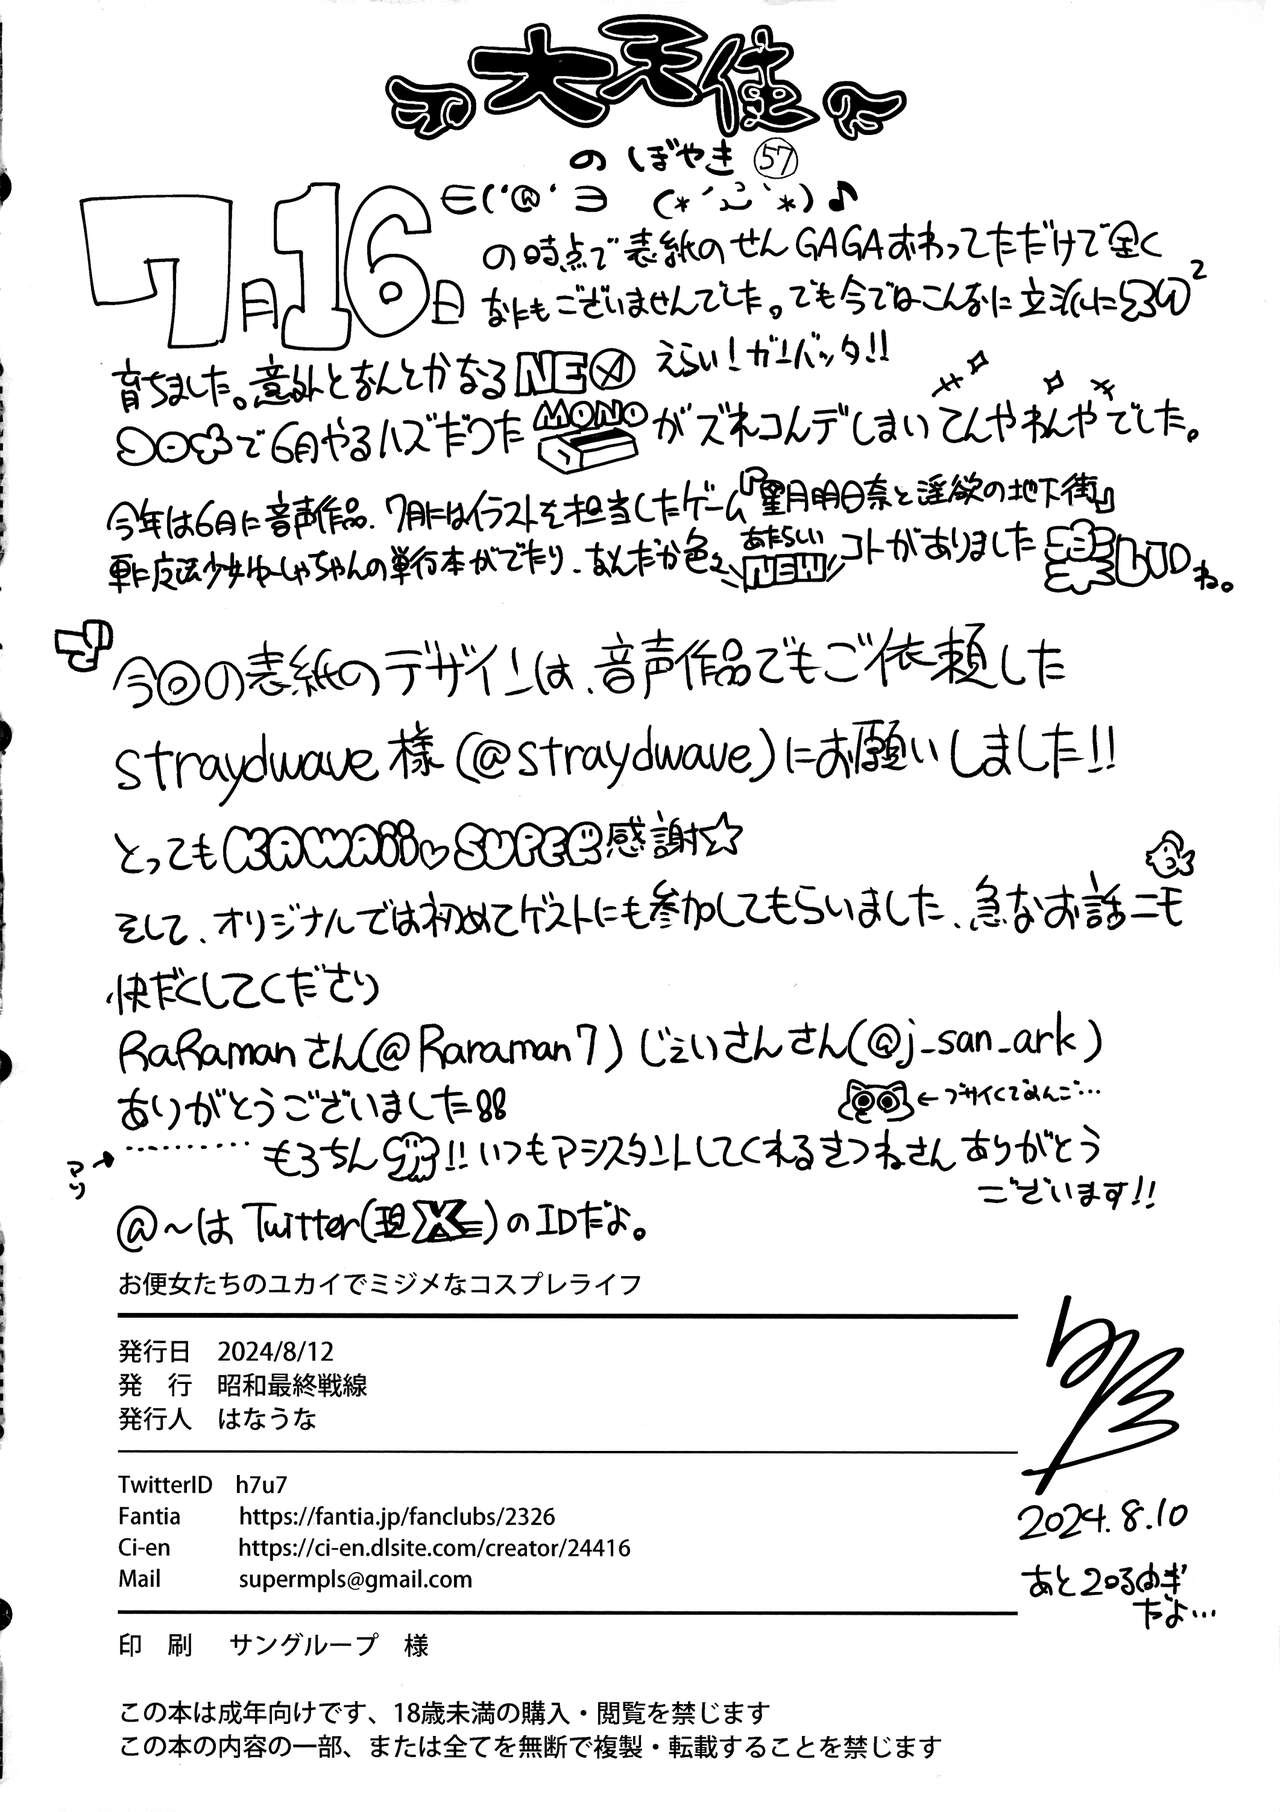 大天使
のぼやき 57
7月16日
の時点で表紙のせんGAGAおわってただけで全く
なにもございませんでした。でも今ではこんなに立派に
育ちました。意外となんとかなる えらい!ガンバッタ!!
で6月やるハズだった MONO がズれコんデしまい てんやわんやでした。
今年は6月に音声作品、7月にはイラストを担当したゲーム『星月明日奈と淫欲の地下街』
更に魔法少女ゆーしゃちゃんの単行本がでたり、なんだか色々 あたらしい NEW コトがありました ね。
今回の表紙のデザインは、音声作品でもご依頼した
straydwave様(@straydwave)にお願いしました!!
とってもKAWAii♡SUPER感謝☆
そして、オリジナルでは初めてゲストにも参加してもらいました、急なお話ニモ
快だくしてくださり
RaRamanさん(@Raraman7)じぇいさんさん(@j_san_ark)
ありがとうございました!!
←ブサイくでめんご…
もろちん !!いつもアシスタントしてくれるきつねさんありがとう
ございます!!
@~はTwitter(現X)のIDだよ。
お便女たちのユカイでミジメなコスプレライフ
発行日 2024/8/12
発 行 昭和最終戦線
発行人 はなうな
TwitterID h7u7
Fantia https://fantia.jp/fanclubs/2326
Ci-en https://ci-en.dlsite.com/creator/24416
Mail supermpls@gmail.com
2024.8.10
印 刷 サングループ 様
この本は成年向けです、18歳未満の購入・閲覧を禁じます
この本の内容の一部、または全てを無断で複製・転載することを禁じます